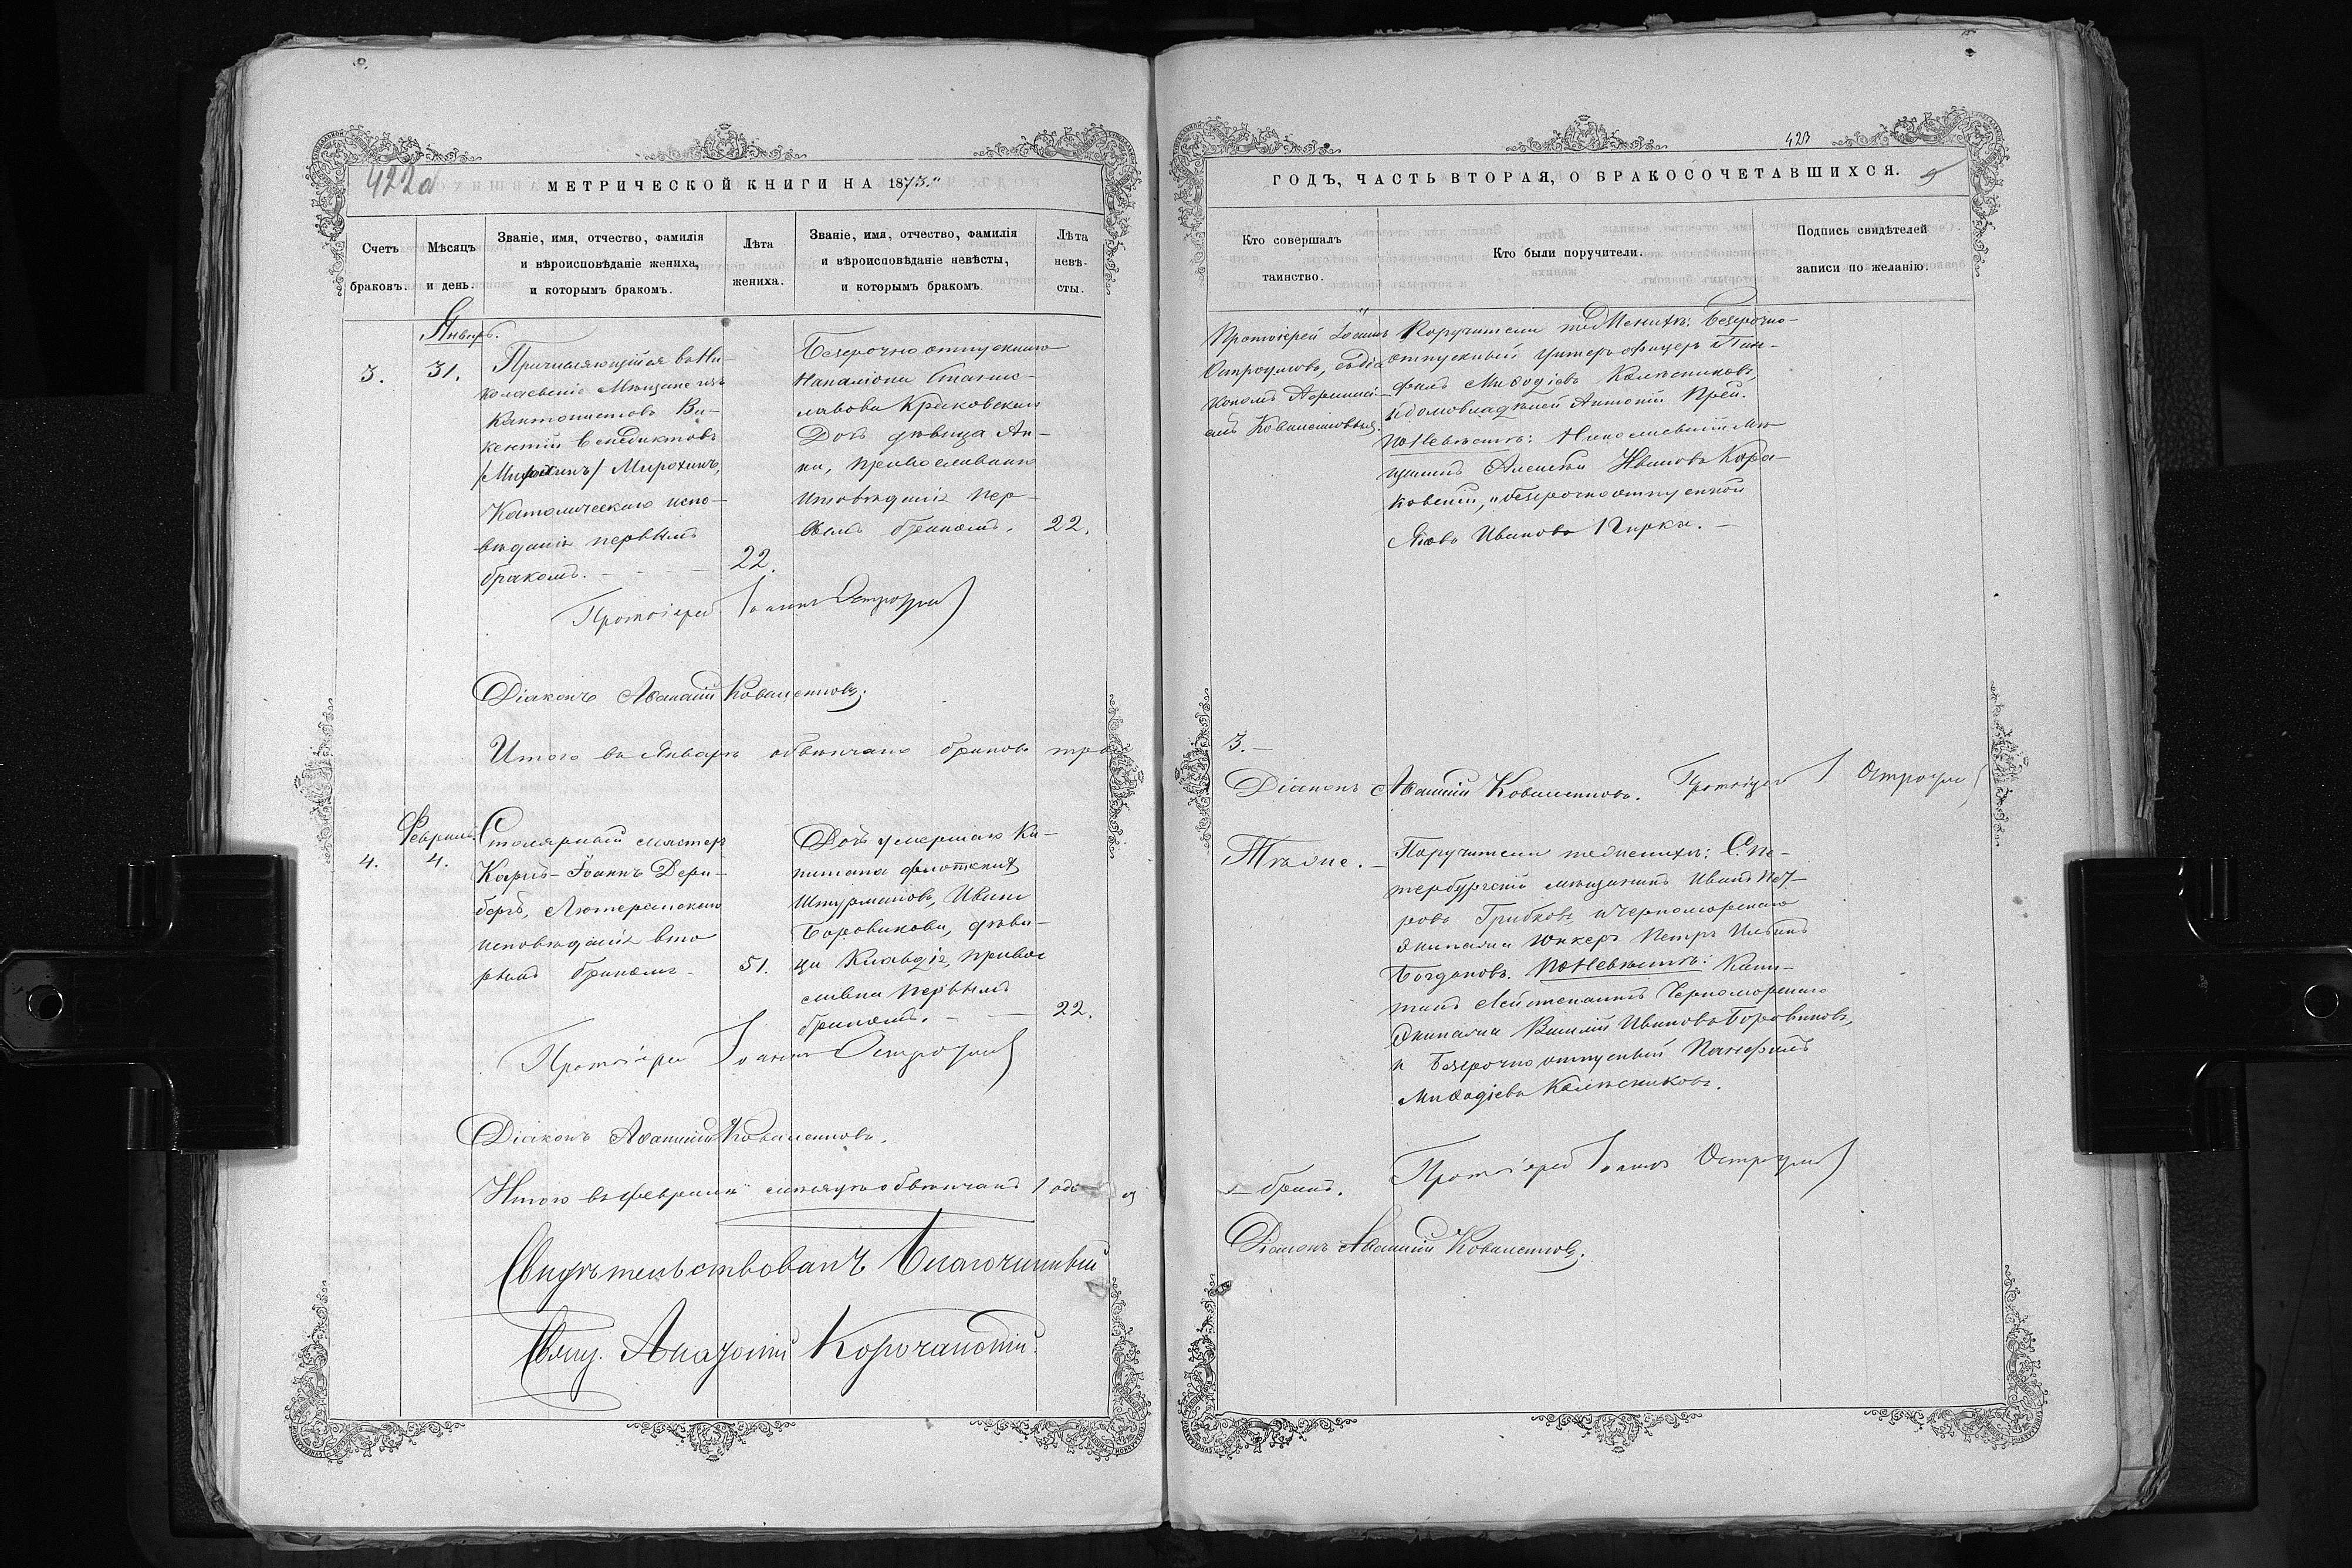 422об
МЕТРИЧЕСКОЙ КНИГИ НА 1875.
Счетъ браковъ.
Мѣсяцъ и день.
Званіе, имя, отчество, фамилія
и вѣроисповѣданіе жениха,
и которымъ бракомъ.
Лѣта
жениха.
Званіе, имя, отчество, фамилія
и вѣроисповѣданіе невѣсты,
и которымъ бракомъ.
Лѣта
невѣ-
сты.
Январь.
3.
31.
Причисляющійся въ Ни-
колаевскіе Мѣщане изъ
Кантонистовъ Ви-
кентій Бенедиктовъ
/ / Мирохинъ,
Католическаго испо-
вѣданія первымъ
бракомъ.
22.
Безсрочно отпускнаго
Наполіона Станис-
лавова Краковскаго
Дочь дѣвица Ан-
на, православнаго
исповѣданія пер-
вымъ бракомъ.
22.
Протоіерей Іоаннъ Остроумовъ
Діаконъ Аѳанасій Ковалентовъ.
Итого въ Январѣ обвѣнчано браковъ три
Февраль.
4.
4.
Столярный мастеръ
Карлъ-Іоаннъ Дери-
бергъ, Лютеранскаго
исповѣданія вто
рымъ бракомъ
51.
Дочь умершаго Ка-
питана флотскихъ
Штурмановъ, Ивана
Боровикова, дѣви-
ца Клавдія, право
славна первымъ
бракомъ.
22.
Протоіерей Іоаннъ Остроумовъ
Діаконъ Аѳанасій Ковалентовъ.
Итого въ февралѣ мѣсяцѣ обвѣнчанъ 1 одинъ
Свидѣтельствовалъ Благочинный
Свящ. Корочанскій.
423
ГОДЪ, ЧАСТЬ ВТОРАЯ, О БРАКОСОЧЕТАВШИХСЯ.
Кто совершалъ
таинство.
Кто были поручители.
Подпись свидѣтелей
записи по желанію.
Протоіерей Іоаннъ
Остроумовъ, съ Діа
кономъ Аѳанасі-
емъ Ковалентовымъ.
Поручители по Женихѣ: Безсрочно-
отпускный Унтеръ офицеръ Пан-
филъ Миѳодіевъ Колѣсниковъ,
и домовладѣлецъ Антоній Прей.
По Невѣстѣ: Николаевскій Мѣ
щанинъ Алексѣй Ивановъ
и безсрочноотпускной
Яковъ Ивановъ Чирка.
3.
Діаконъ Аѳанасій Ковалентовъ. Протоіерей І Остроумовъ
Тѣ же.
Поручители по женихѣ: С. Пе-
тербургскій мѣщанинъ Иванъ Пет-
ровъ Грибковъ, и Черноморскаго
Экипажа Юнкеръ Петръ Ильинъ
Богдановъ. По Невѣстѣ: Капи-
танъ Лейтенантъ Черноморскаго
Экипажа Василій Ивановъ Боровиковъ,
и Безсрочно отпускный Панфилъ
Миѳодіевъ Колѣсниковъ.
бракъ.
Протоіерей Іоаннъ Остроумовъ
Діаконъ Аѳанасій Ковалентовъ.